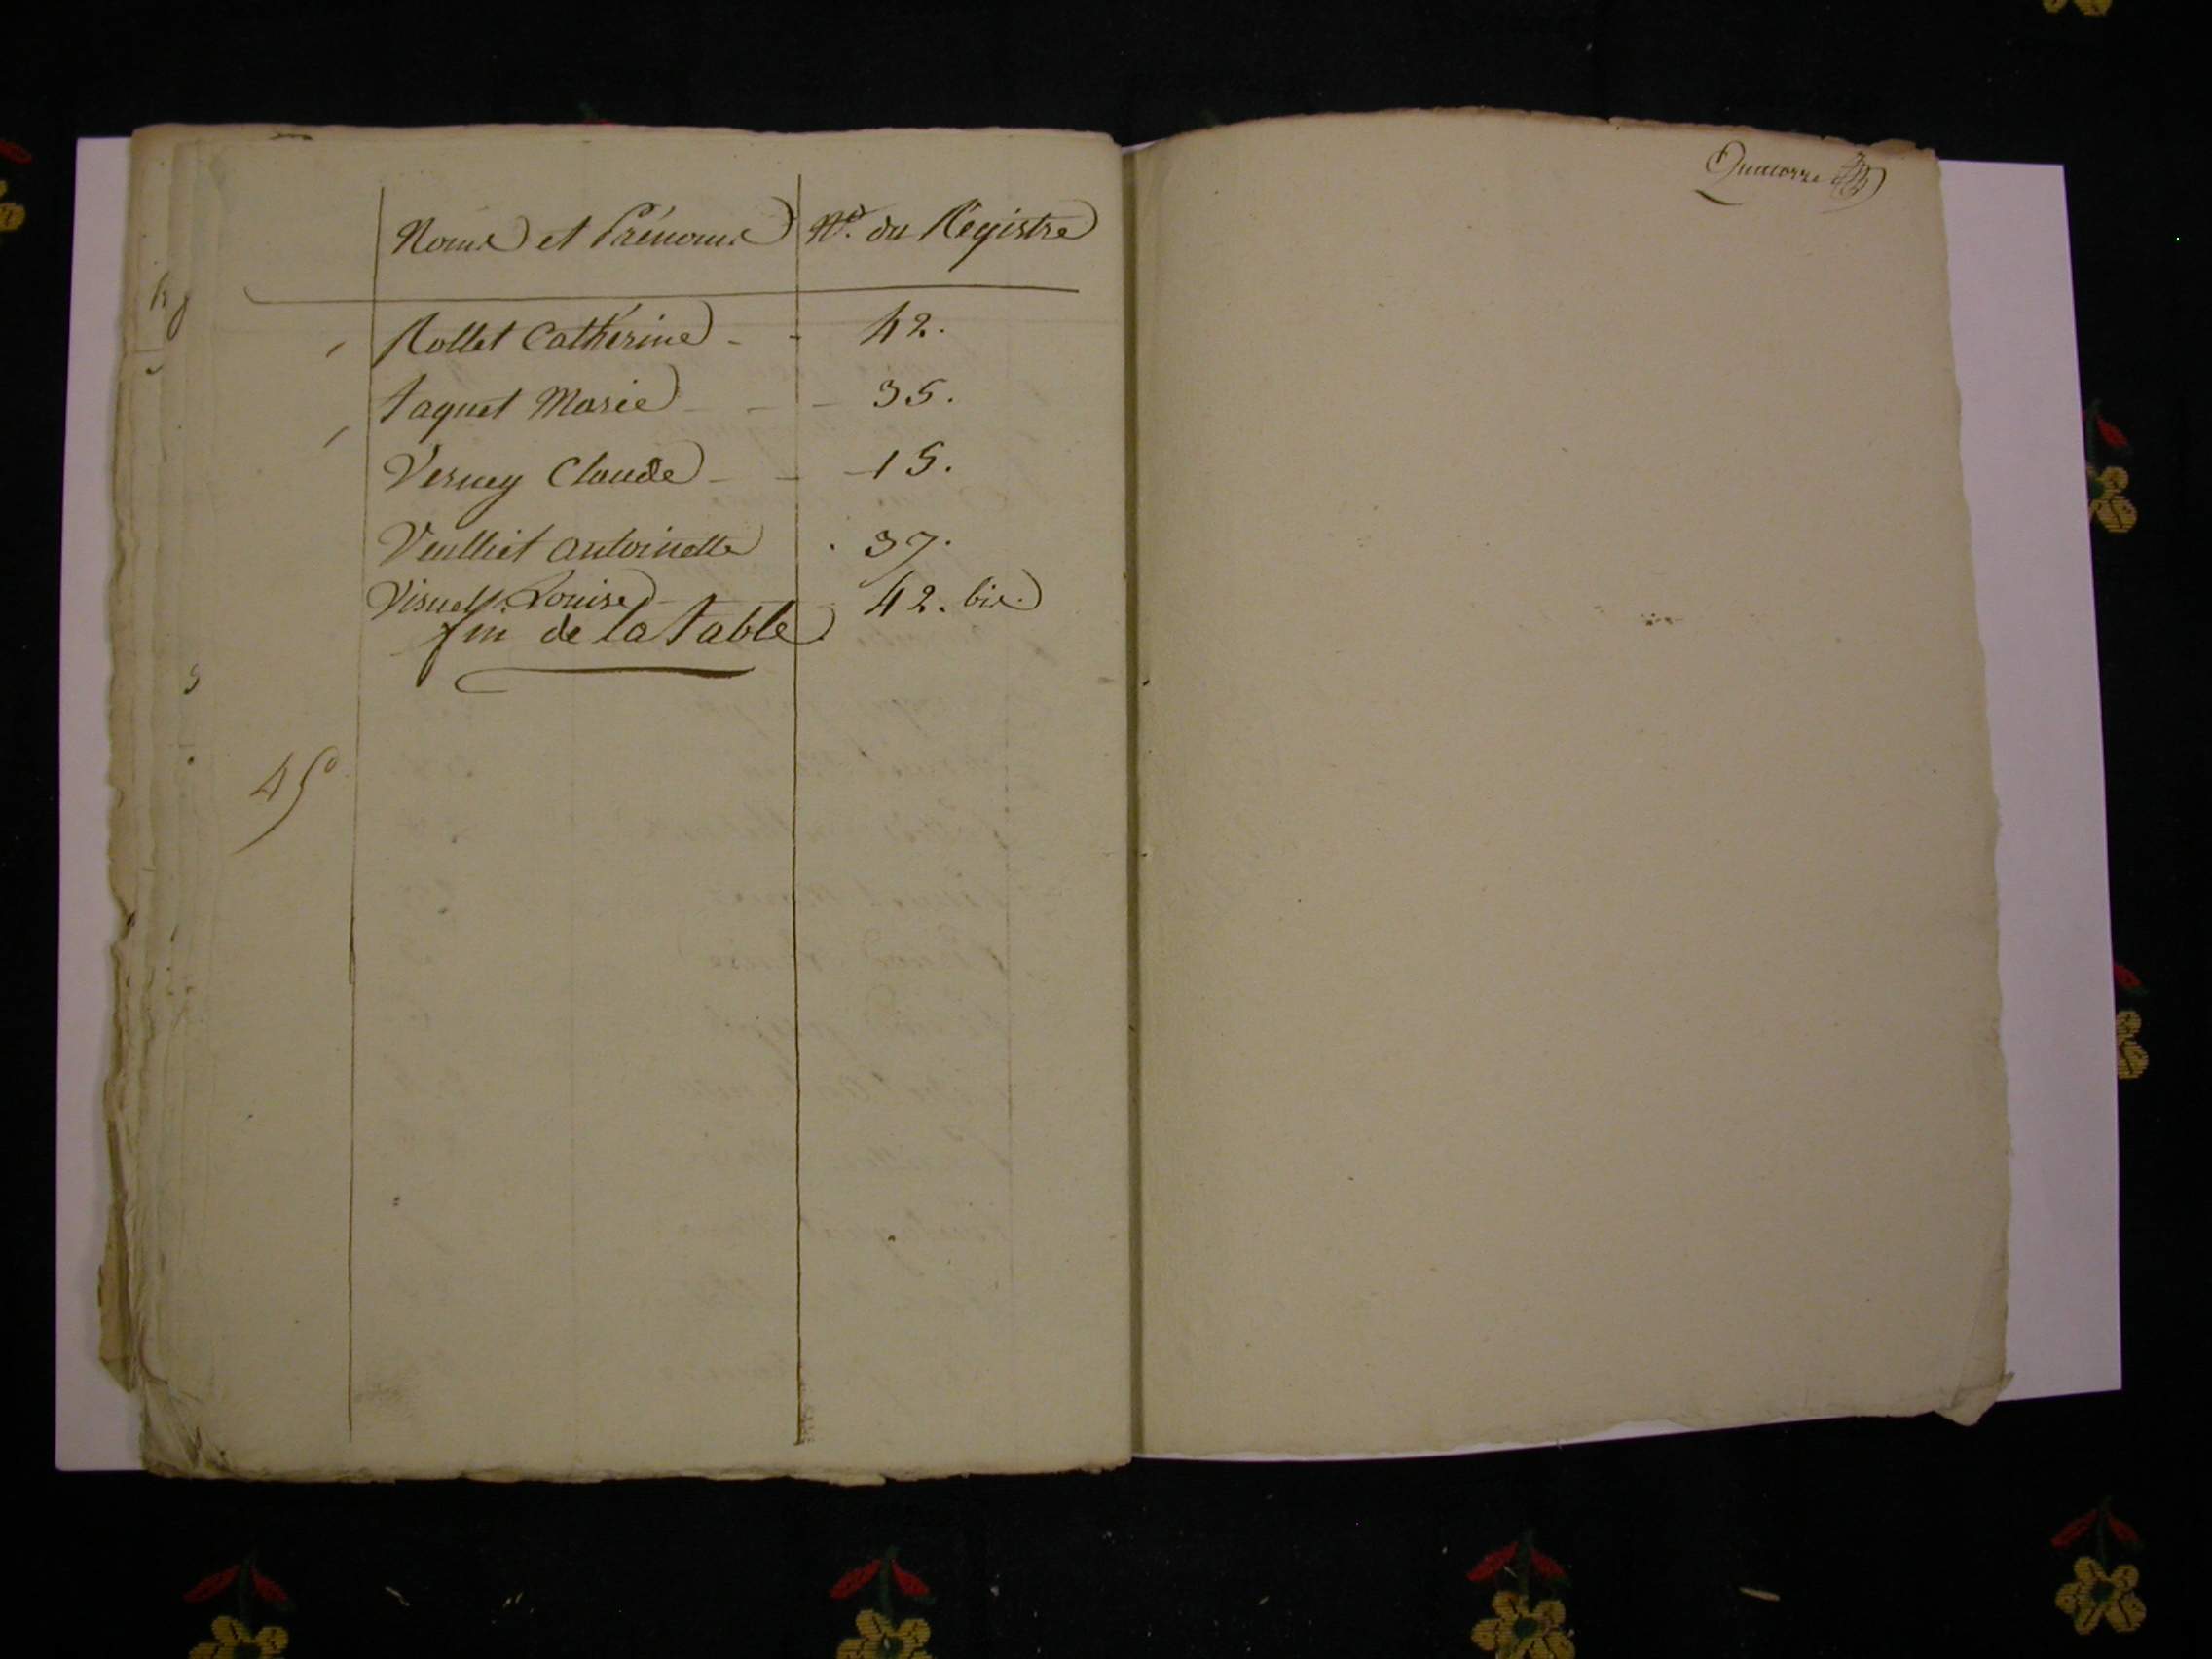 Noms et Prénoms N.º du Régistre
Rollet Catherine - - 42.
Taquet Marie - - - 35.
Verney Claude - - 15.
Veulliet antoinette . 37.
Visuel Louise 42. bis.
fin de la Table
45
Quatorze